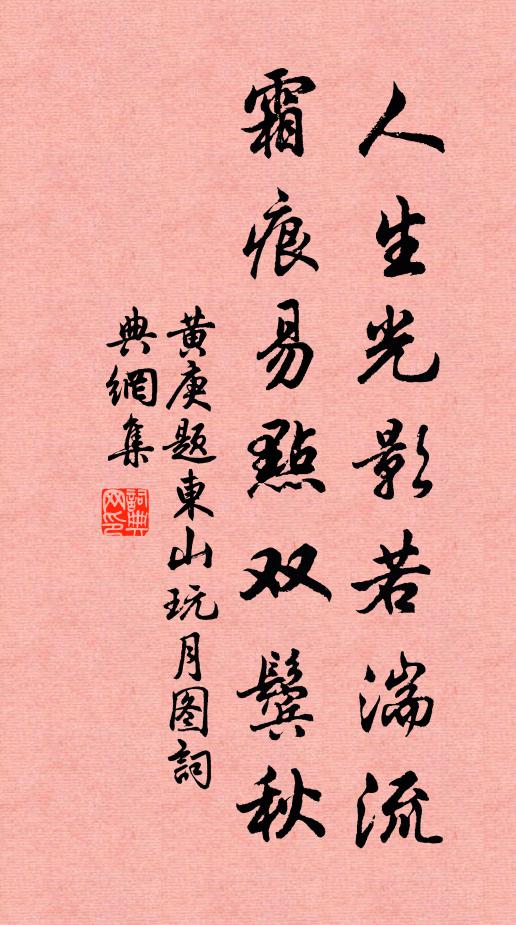 人生光影若湍流
霜痕易點双鬓秋
黄庚题東山玩月图詞
典網集
詞典网印